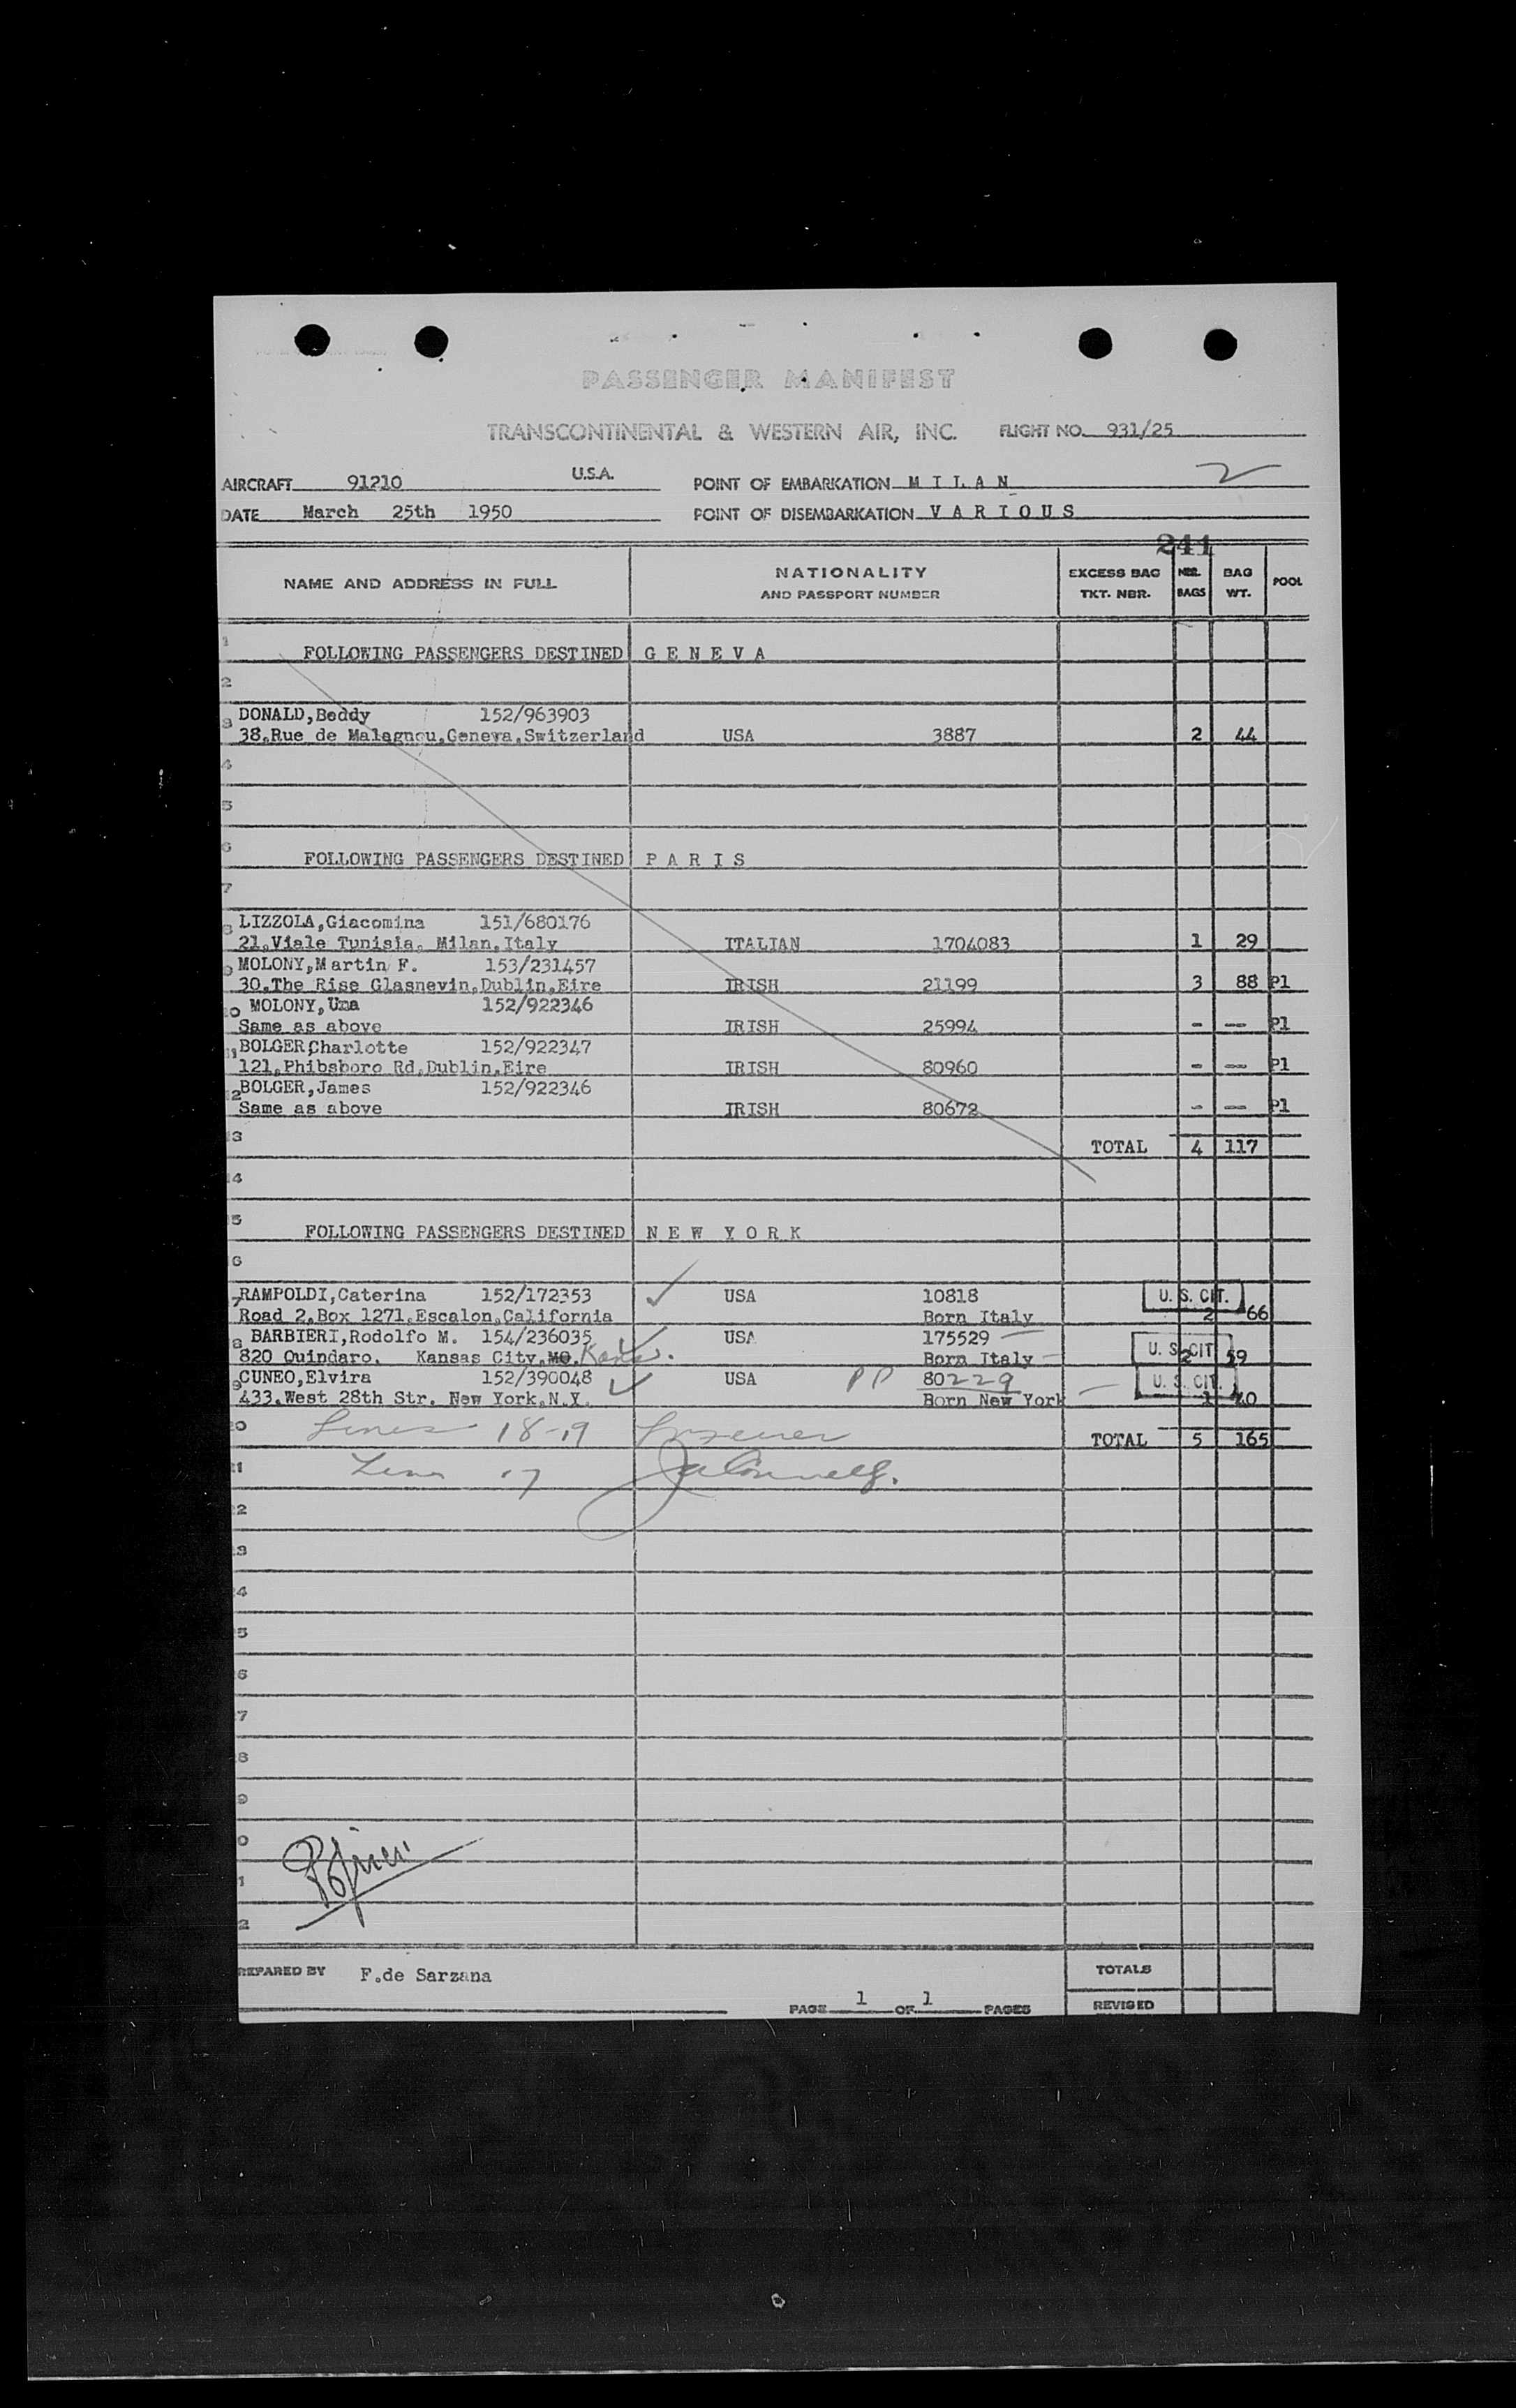 PASSENGER MANIFEST
TRANSCONTINENTAL & WESTERN AIR, INC. FLIGHT NO. 931/25
AIRCRAFT 91210 U.S.A. POINT OF EMBARKATION M I L A N 2
DATE March 25th 1950 POINT OF DISEMBARKATION V A R I O U S
241
NAME AND ADDRESS IN FULL NATIONALITY AND PASSPORT NUMBER EXCESS BAG TKT. NBR. NBR. BAGS BAG WT. POOL
1 FOLLOWING PASSENGERS DESTINED G E N E V A
2
3 DONALD,Beddy 152/963903
38,Rue de Malagnou,Geneva,Switzerland USA 3887 2 44
4
5
6 FOLLOWING PASSENGERS DESTINED P A R I S
7
8 LIZZOLA,Giacomina 151/680176
21,Viale Tunisia, Milan,Italy ITALIAN 1704083 1 29
9 MOLONY,Martin F. 153/231457
30,The Rise Glasnevin,Dublin,Eire IRISH 21199 3 88 P1
0 MOLONY,Una 152/922346
Same as above IRISH 25994 - -- P1
11 BOLGER,Charlotte 152/922347
121,Phibsboro Rd,Dublin,Eire IRISH 80960 - -- P1
12 BOLGER,James 152/922346
Same as above IRISH 80672 - -- P1
13 TOTAL 4 117
14
15 FOLLOWING PASSENGERS DESTINED N E W Y O R K
6
7 RAMPOLDI,Caterina 152/172353 USA 10818 U. S. CIT.
Road 2,Box 1271,Escalon,California Born Italy 2 66
8 BARBIERI,Rodolfo M. 154/236035 USA 175529 U. S. CIT.
820 Quindaro, Kansas City,MO. Kans. Born Italy 2 59
9 CUNEO,Elvira 152/390048 USA PP 80229 U. S. CIT.
433,West 28th Str. New York,N.Y. Born New York 1 40
20 Lines 18-19 TOTAL 5 165
21 Line 17
2
3
4
5
6
7
8
9
0
1
2
PREPARED BY F.de Sarzana TOTALS
PAGE 1 OF 1 PAGES REVISED